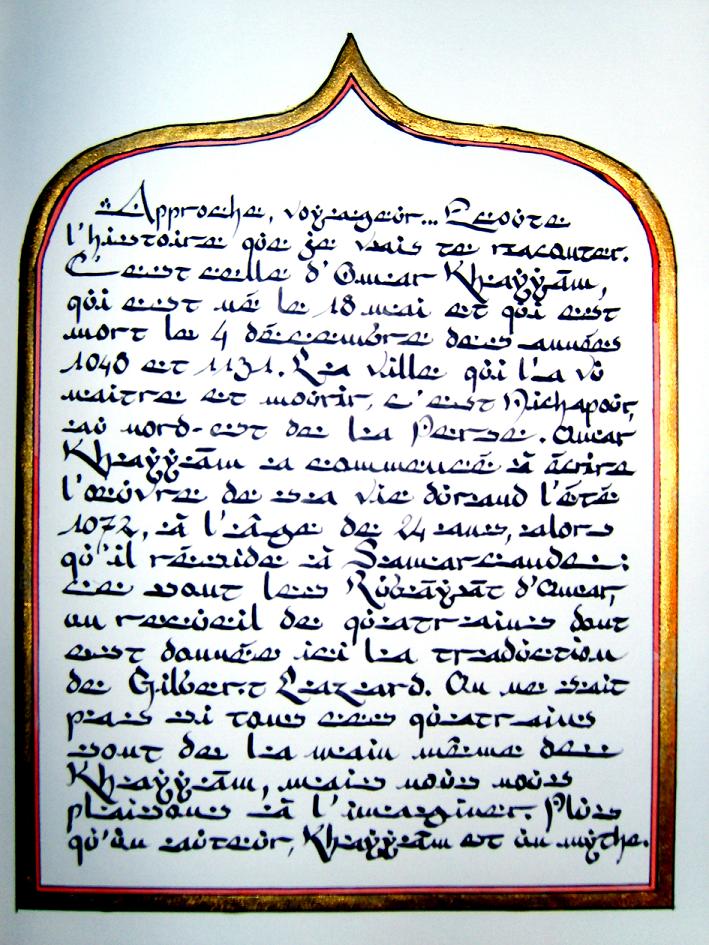 "Approche, voyageur... Ecoute
l'histoire que je vais te raconter.
C'est celle d'Omar Khayyām,
qui est né le 18 mai et qui est
mort le 4 décembre des années
1048 et 1131. La ville qui l'a vu
naitre et mourir, c'est Nichapour,
au nord-est de la Perse. Omar
Khayyām a commencé à écrire
l'œuvre de sa vie durand l'été
1072, à l'âge de 24 ans, alors
qu'il réside à Samarcande :
ce sont les Rubāyāt d'Omar,
un recueil de quatrains dont
est donnée ici la traduction
de Gilbert Lazard. On ne sait
pas si tous ces quatrains
sont de la main même de
Khayyām, mais nous nous
plaisons à l'imaginer. Plus
qu'un auteur, Khayyām est un mythe.